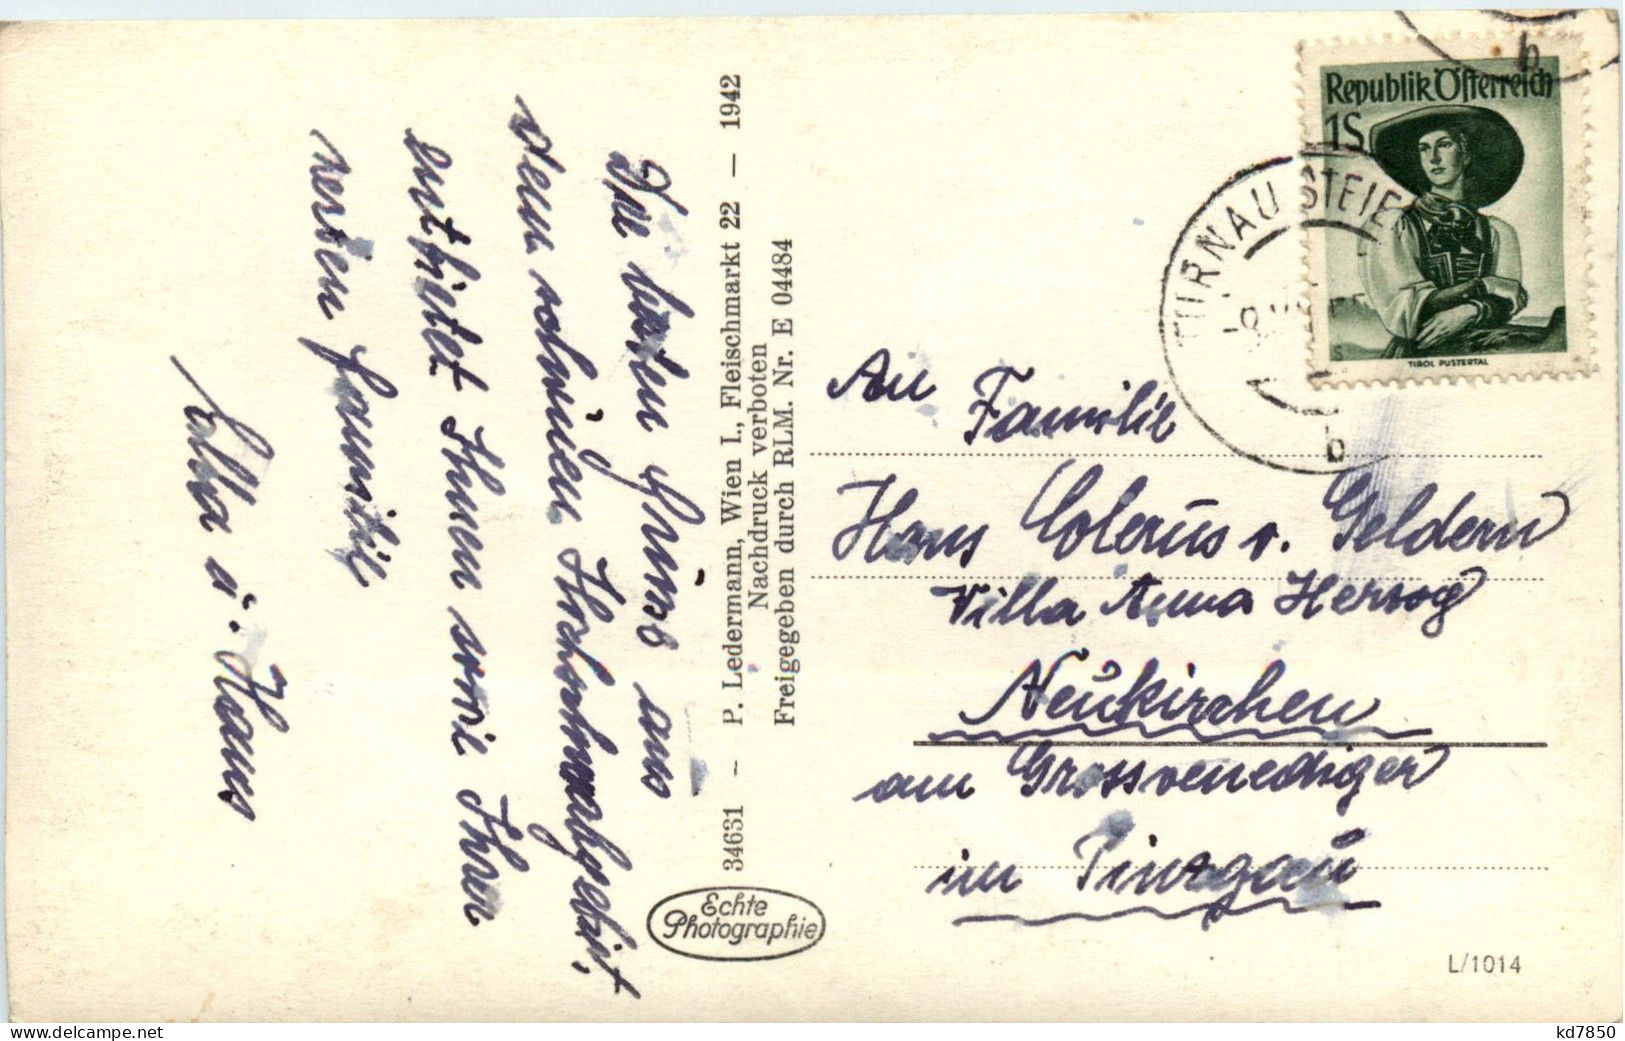 Die besten Grüsse aus
dem schönen Hochschwabgebiet,
entbietet Ihnen sowie Ihrer
werten Familie
Ella u. Hans
34631 – P. Ledermann, Wien I., Fleischmarkt 22 – 1942
Nachdruck verboten
Freigegeben durch RLM. Nr. E 04484
Echte
Photographie
Republik Österreich
1S
TIROL PUSTERTAL
TURNAU STEIE
b
b
An Familie
Hans Colerus v. Geldern
Villa Anna Herzog
Neukirchen
am Grossvenediger
im Pinzgau
L/1014
kd7850